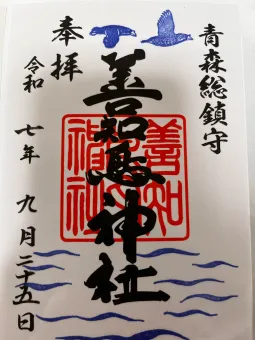 青森総鎮守
奉拝
善知鳥神社
善知鳥神社
令和七年九月二十五日